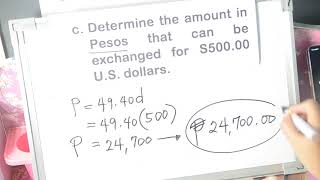 c. Determine the amount in
Pesos that can be
exchanged for S500.00
U.S. dollars.
P = 49.40d
= 49.40(500)
P = 24,700 → ₱ 24,700.00